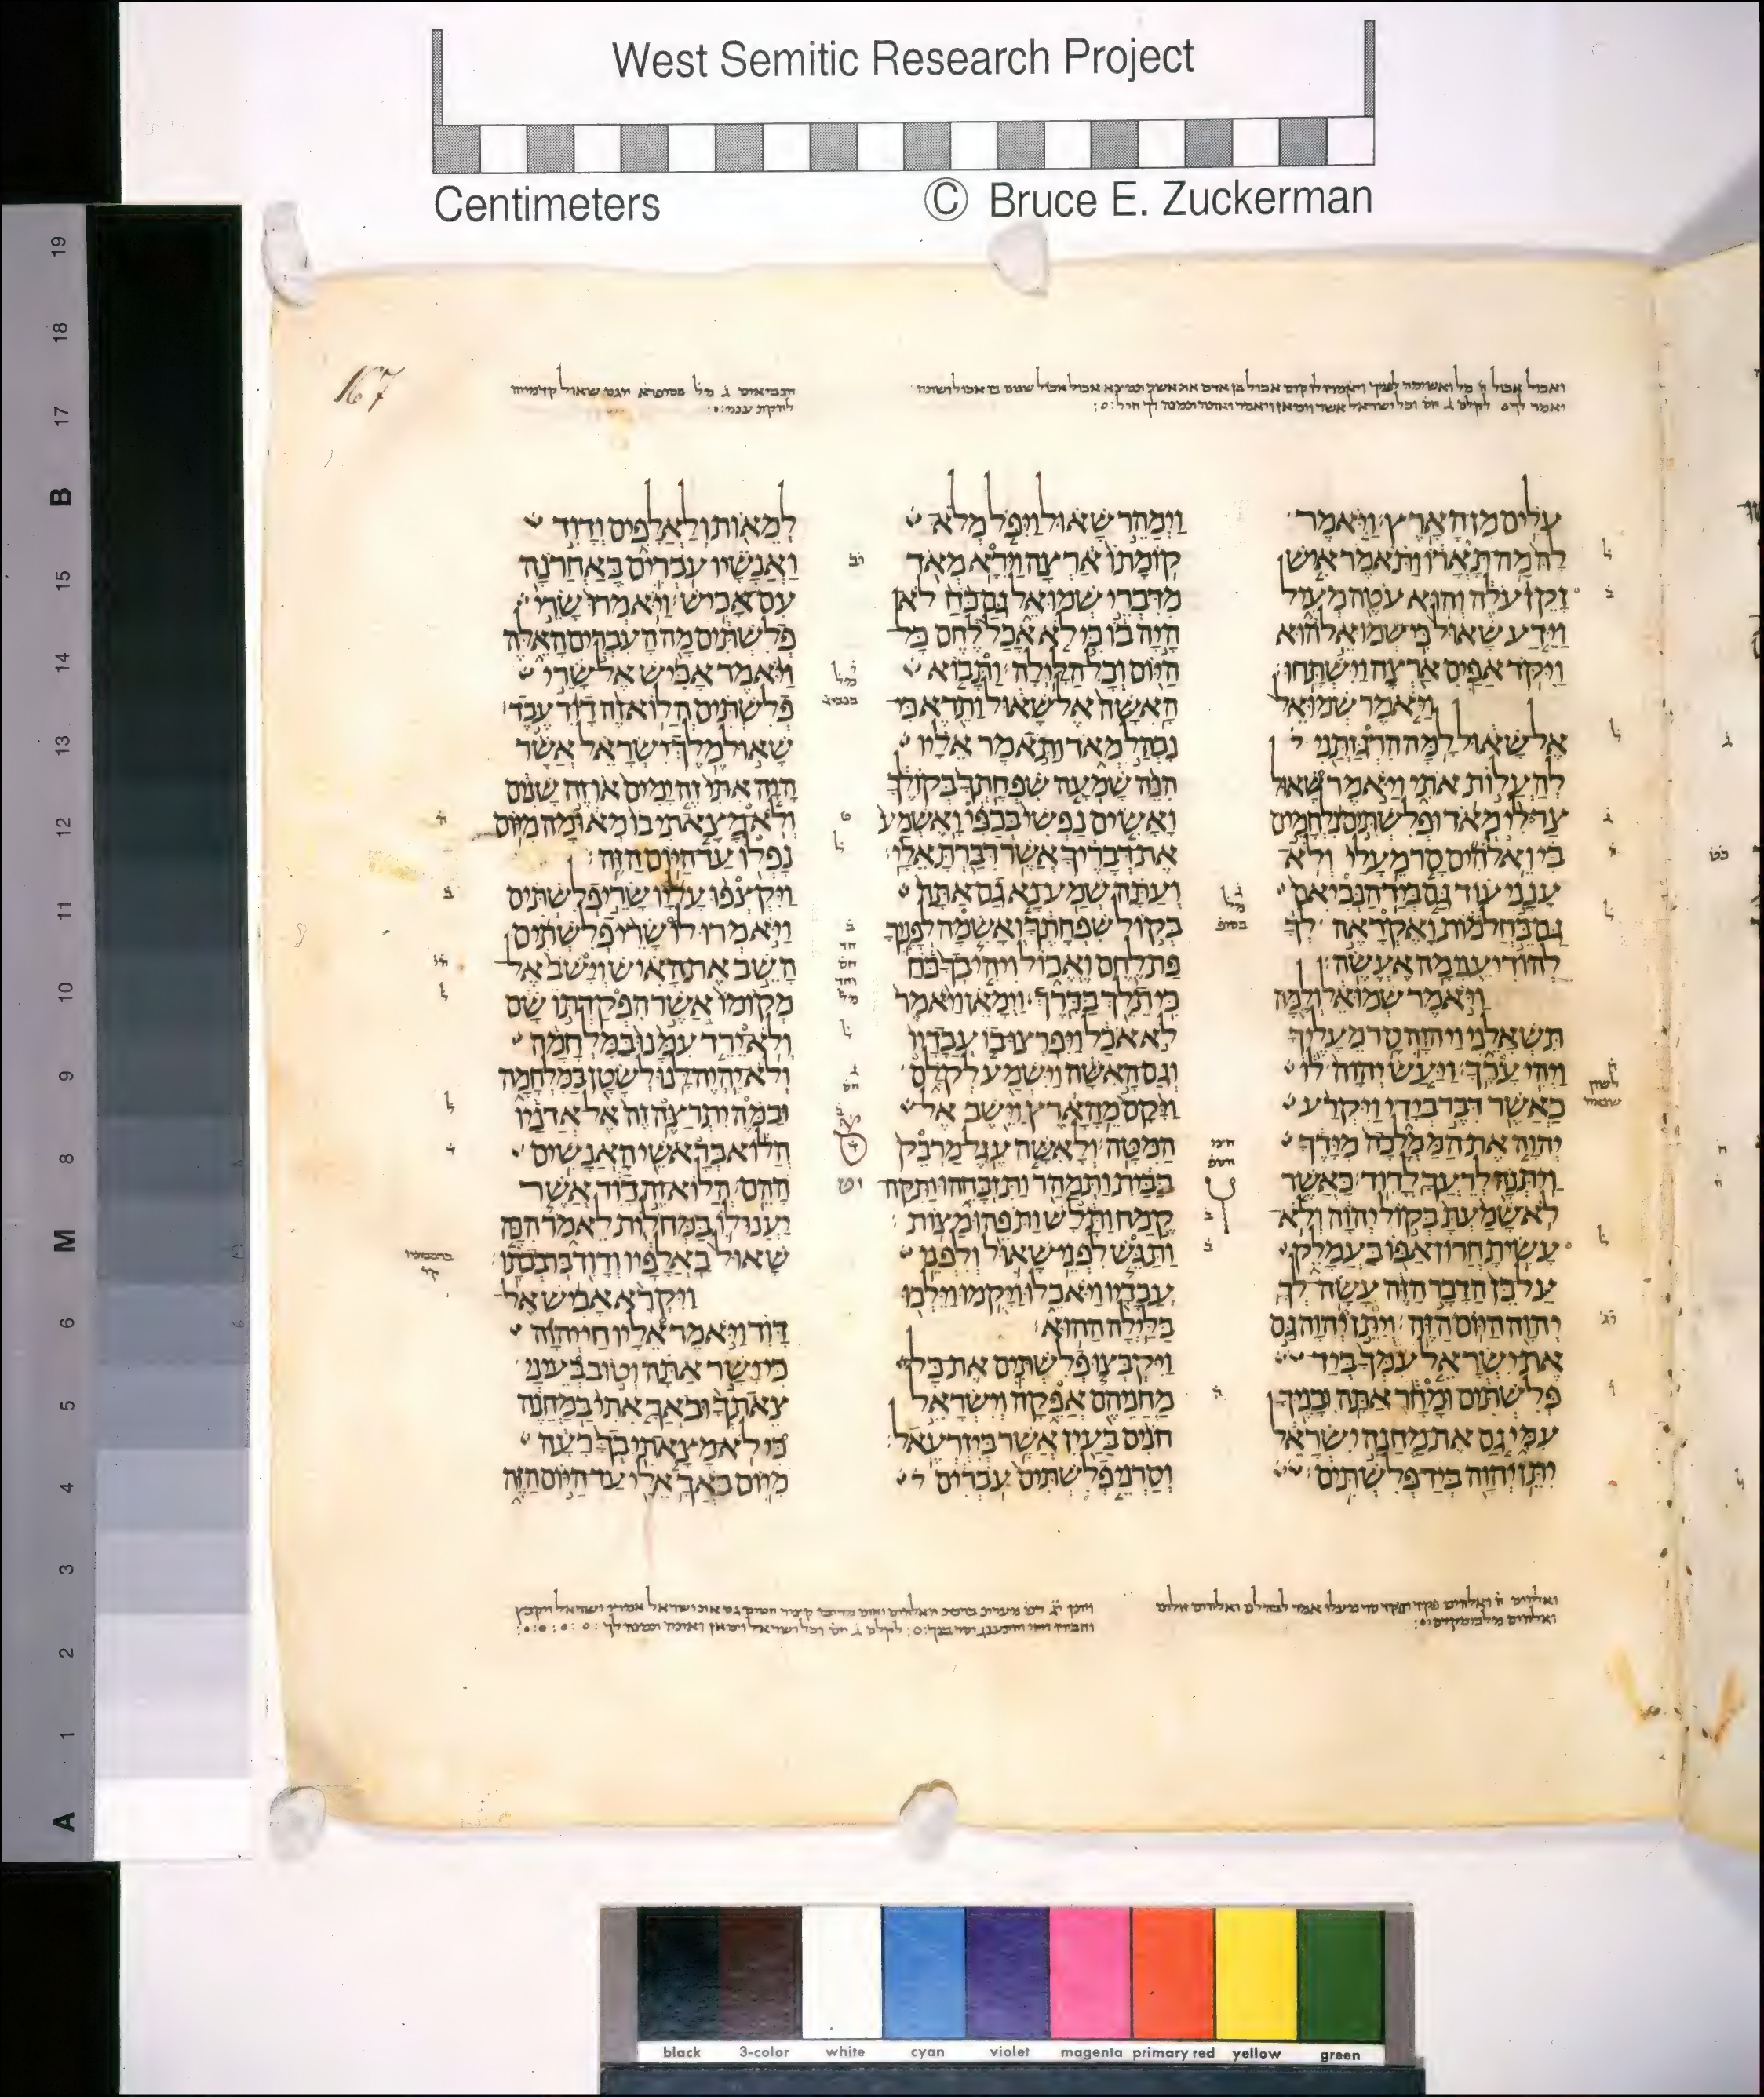 West Semitic Research Project
Centimeters © Bruce E. Zuckerman
167
עֹלִים מִן הָאָרֶץ׃ וַיֹּאמֶר
לָהּ מַה תָּאֳרוֹ וַתֹּאמֶר אִישׁ
זָקֵן עֹלֶה וְהוּא עֹטֶה מְעִיל
וַיֵּדַע שָׁאוּל כִּי שְׁמוּאֵל הוּא
וַיִּקֹּד אַפַּיִם אַרְצָה וַיִּשְׁתָּחוּ׃
וַיֹּאמֶר שְׁמוּאֵל
אֶל שָׁאוּל לָמָּה הִרְגַּזְתַּנִי
לְהַעֲלוֹת אֹתִי וַיֹּאמֶר שָׁאוּל
צַר לִי מְאֹד וּפְלִשְׁתִּים נִלְחָמִים
בִּי וֵאלֹהִים סָר מֵעָלַי וְלֹא
עָנָנִי עוֹד גַּם בְּיַד הַנְּבִיאִם
גַּם בַּחֲלֹמוֹת וָאֶקְרָאֶה לְךָ
לְהוֹדִיעֵנִי מָה אֶעֱשֶׂה׃
וַיֹּאמֶר שְׁמוּאֵל וְלָמָּה
תִּשְׁאָלֵנִי וַיהוָה סָר מֵעָלֶיךָ
וַיְהִי עָרֶךָ׃ וַיַּעַשׂ יְהוָה לוֹ
כַּאֲשֶׁר דִּבֶּר בְּיָדִי וַיִּקְרַע
יְהוָה אֶת הַמַּמְלָכָה מִיָּדֶךָ
וַיִּתְּנָהּ לְרֵעֲךָ לְדָוִד׃ כַּאֲשֶׁר
לֹא שָׁמַעְתָּ בְּקוֹל יְהוָה וְלֹא
עָשִׂיתָ חֲרוֹן אַפּוֹ בַּעֲמָלֵק
עַל כֵּן הַדָּבָר הַזֶּה עָשָׂה לְךָ
יְהוָה הַיּוֹם הַזֶּה׃ וְיִתֵּן יְהוָה גַּם
אֶת יִשְׂרָאֵל עִמְּךָ בְּיַד
פְּלִשְׁתִּים וּמָחָר אַתָּה וּבָנֶיךָ
עִמִּי גַּם אֶת מַחֲנֵה יִשְׂרָאֵל
יִתֵּן יְהוָה בְּיַד פְּלִשְׁתִּים׃
וַיְמַהֵר שָׁאוּל וַיִּפֹּל מְלֹא
קוֹמָתוֹ אַרְצָה וַיִּרָא מְאֹד
מִדִּבְרֵי שְׁמוּאֵל גַּם כֹּחַ לֹא
הָיָה בוֹ כִּי לֹא אָכַל לֶחֶם כָּל
הַיּוֹם וְכָל הַלָּיְלָה׃ וַתָּבוֹא
הָאִשָּׁה אֶל שָׁאוּל וַתֵּרֶא כִּי
נִבְהַל מְאֹד וַתֹּאמֶר אֵלָיו
הִנֵּה שָׁמְעָה שִׁפְחָתְךָ בְּקוֹלֶךָ
וָאָשִׂים נַפְשִׁי בְּכַפִּי וָאֶשְׁמַע
אֶת דְּבָרֶיךָ אֲשֶׁר דִּבַּרְתָּ אֵלָי׃
וְעַתָּה שְׁמַע נָא גַם אַתָּה
בְּקוֹל שִׁפְחָתֶךָ וְאָשִׂמָה לְפָנֶיךָ
פַּת לֶחֶם וֶאֱכוֹל וִיהִי בְךָ כֹּחַ
כִּי תֵלֵךְ בַּדָּרֶךְ׃ וַיְמָאֵן וַיֹּאמֶר
לֹא אֹכַל וַיִּפְרְצוּ בוֹ עֲבָדָיו
וְגַם הָאִשָּׁה וַיִּשְׁמַע לְקֹלָם
וַיָּקָם מֵהָאָרֶץ וַיֵּשֶׁב אֶל
הַמִּטָּה׃ וְלָאִשָּׁה עֵגֶל מַרְבֵּק
בַּבַּיִת וַתְּמַהֵר וַתִּזְבָּחֵהוּ וַתִּקַּח
קֶמַח וַתָּלָשׁ וַתֹּפֵהוּ מַצּוֹת׃
וַתַּגֵּשׁ לִפְנֵי שָׁאוּל וְלִפְנֵי
עֲבָדָיו וַיֹּאכֵלוּ וַיָּקֻמוּ וַיֵּלְכוּ
בַּלַּיְלָה הַהוּא׃
וַיִּקְבְּצוּ פְלִשְׁתִּים אֶת כָּל
מַחֲנֵיהֶם אֲפֵקָה וְיִשְׂרָאֵל
חֹנִים בַּעַיִן אֲשֶׁר בְּיִזְרְעֶאל׃
וְסַרְנֵי פְלִשְׁתִּים עֹבְרִים
לְמֵאוֹת וְלַאֲלָפִים וְדָוִד
וַאֲנָשָׁיו עֹבְרִים בָּאַחֲרֹנָה
עִם אָכִישׁ׃ וַיֹּאמְרוּ שָׂרֵי
פְלִשְׁתִּים מָה הָעִבְרִים הָאֵלֶּה
וַיֹּאמֶר אָכִישׁ אֶל שָׂרֵי
פְלִשְׁתִּים הֲלוֹא זֶה דָוִד עֶבֶד
שָׁאוּל מֶלֶךְ יִשְׂרָאֵל אֲשֶׁר
הָיָה אִתִּי זֶה יָמִים אוֹ זֶה שָׁנִים
וְלֹא מָצָאתִי בוֹ מְאוּמָה מִיּוֹם
נָפְלוֹ עַד הַיּוֹם הַזֶּה׃
וַיִּקְצְפוּ עָלָיו שָׂרֵי פְלִשְׁתִּים
וַיֹּאמְרוּ לוֹ שָׂרֵי פְלִשְׁתִּים
הָשֵׁב אֶת הָאִישׁ וְיָשֹׁב אֶל
מְקוֹמוֹ אֲשֶׁר הִפְקַדְתּוֹ שָׁם
וְלֹא יֵרֵד עִמָּנוּ בַּמִּלְחָמָה
וְלֹא יִהְיֶה לָּנוּ לְשָׂטָן בַּמִּלְחָמָה
וּבַמֶּה יִתְרַצֶּה זֶה אֶל אֲדֹנָיו
הֲלוֹא בְּרָאשֵׁי הָאֲנָשִׁים
הָהֵם׃ הֲלוֹא זֶה דָוִד אֲשֶׁר
יַעֲנוּ לוֹ בַּמְּחֹלוֹת לֵאמֹר הִכָּה
שָׁאוּל בַּאֲלָפָיו וְדָוִד בְּרִבְבֹתָו׃
וַיִּקְרָא אָכִישׁ אֶל
דָּוִד וַיֹּאמֶר אֵלָיו חַי יְהוָה
כִּי יָשָׁר אַתָּה וְטוֹב בְּעֵינַי
צֵאתְךָ וּבֹאֲךָ אִתִּי בַּמַּחֲנֶה
כִּי לֹא מָצָאתִי בְךָ רָעָה
מִיּוֹם בֹּאֲךָ אֵלַי עַד הַיּוֹם הַזֶּה
19
18
17
B
15
14
13
12
11
10
9
8
M
6
5
4
3
2
1
A
black 3-color white cyan violet magenta primary red yellow green